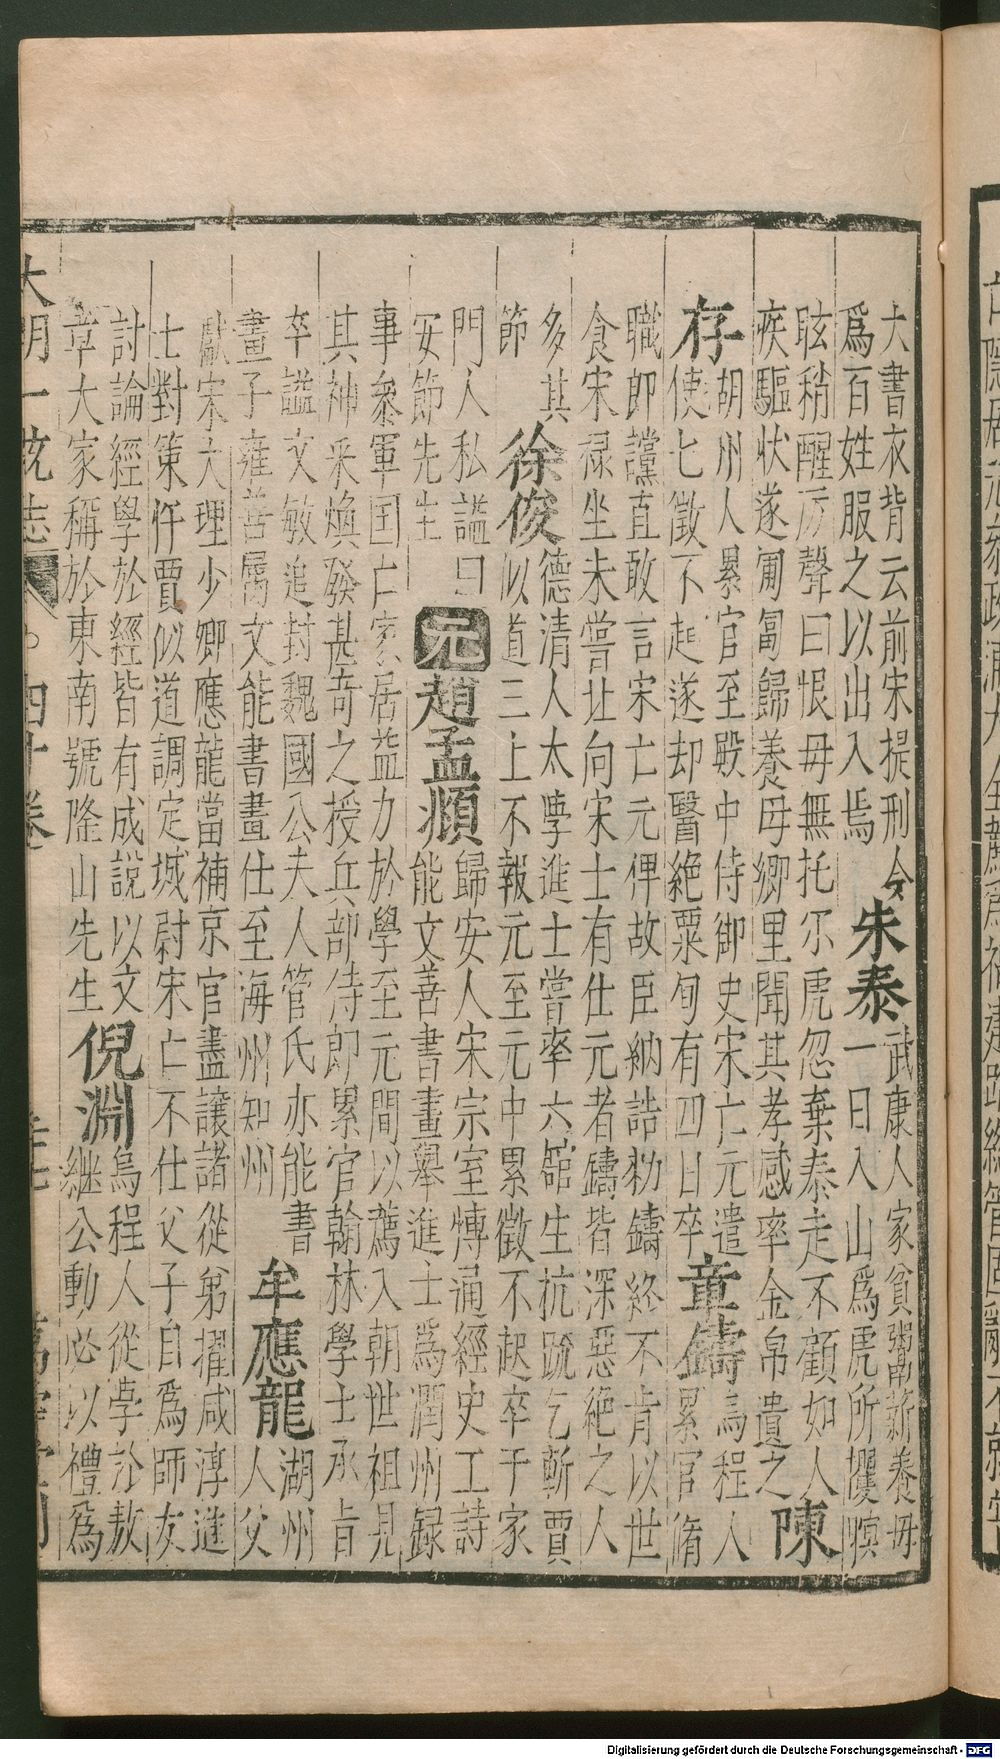 大書衣背云前宋提刑今
爲百姓服之以出入焉
朱泰
武康人家貧鬻薪養毋
一日入山爲虎所攫瞑
眩稍醒厉聲曰恨毋無托尔虎忽棄泰走不顧如人
疾驅状遂匍匐歸養母鄉里聞其孝感率金帛遺之
陳
存
胡州人累官至殿中侍御史宋亡元遣
使七徵不起遂却醫絶粟旬有四日卒
童鑄
烏程人
累官脩
職即讜直敢言宋亡元俾故臣納誥勑鑄終不肯以世
食宋禄坐未嘗北向宋士有仕元者鑄皆深惡絶之人
多其
節
徐俊
德清人太學進士嘗率六舘生抗䟽乞斬賈
似道三上不報元至元中累徵不起卒于家
門人私謚曰
安節先生
元
趙孟頫
歸安人宋宗室慱通經史工詩
能文善書畫舉進士爲潤州録
事叅軍国亡家居益力於學至元間以薦入朝世祖見
其神采煥發甚奇之授兵部侍郎累官翰林學士承旨
卒謚文敏追封魏國公夫人管氏亦能書
畫子雍善屬文能書畫仕至海州知州
牟應龍
湖州
人父
獻宋大理少卿應龍當補京官盡讓諸從弟擢咸淳進
士對策忤賈似道調定城尉宋亡不仕父子自爲師友
討論經學於經皆有成說以文
章大家稱於東南號隆山先生
倪淵
烏程人從學於敖
繼公動必以禮爲
大明一統志
四十卷
Digitalisierung gefördert durch die Deutsche Forschungsgemeinschaft - DFG